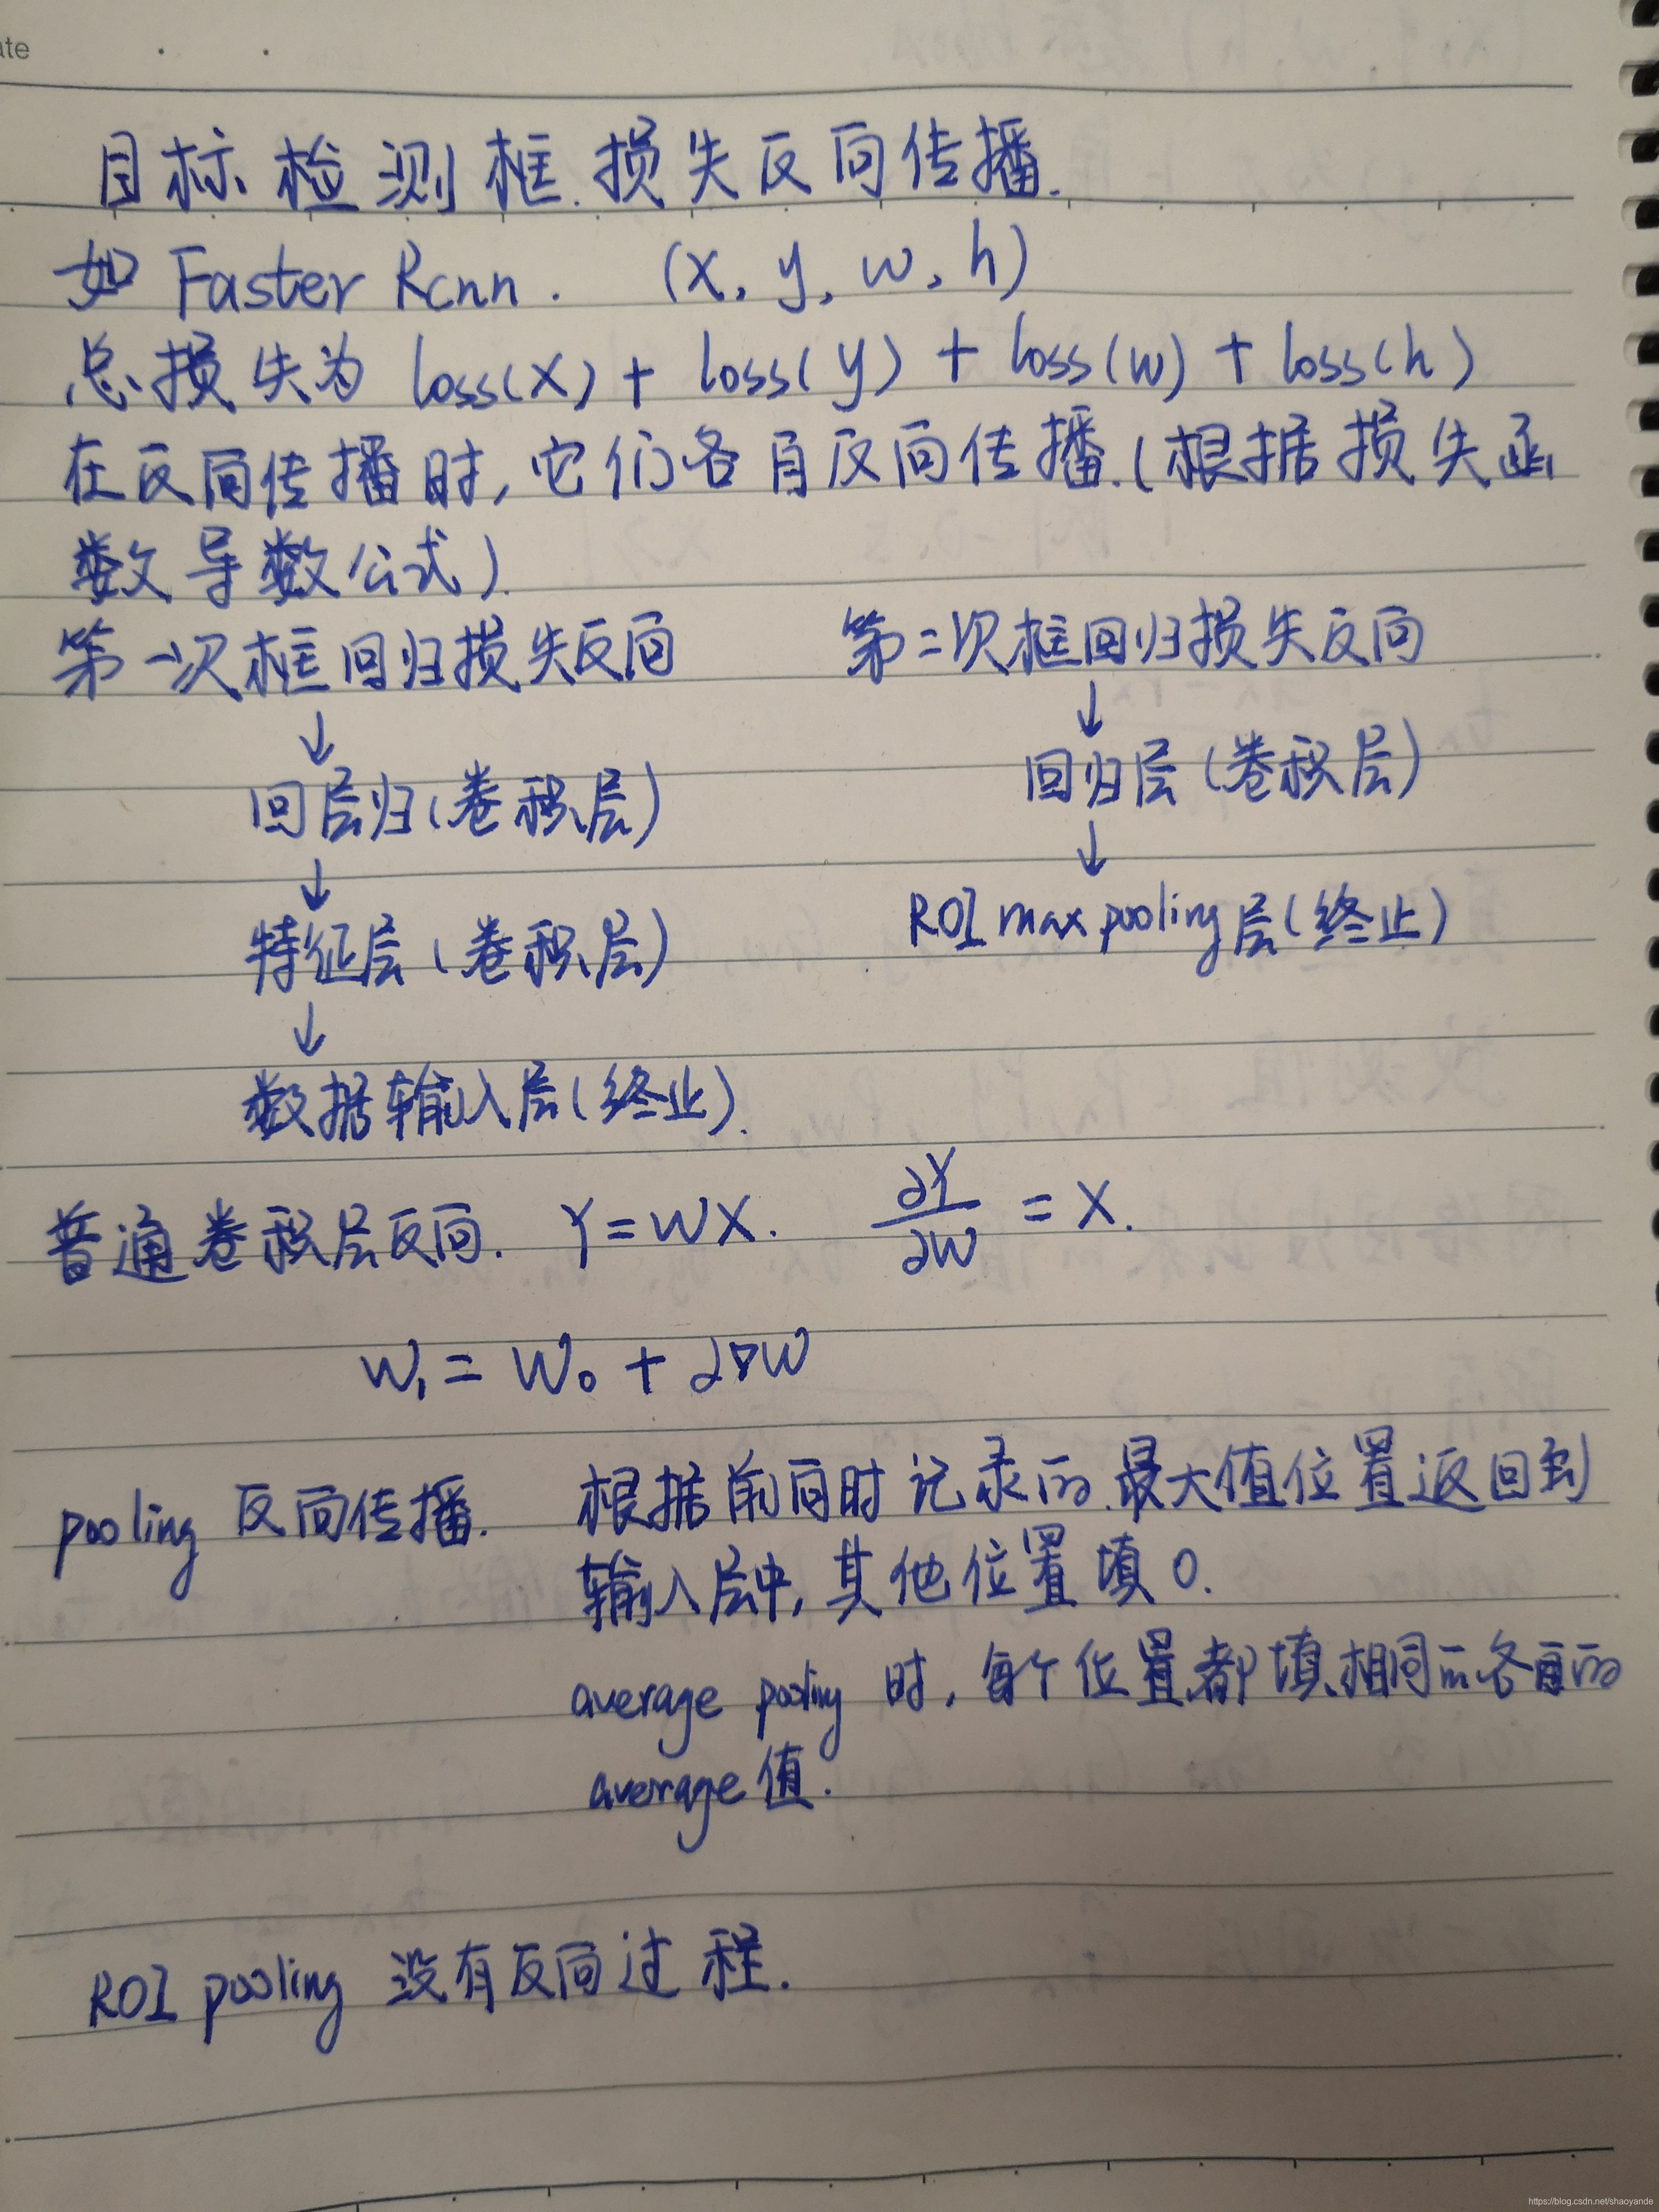 ate
目标检测框.损失反向传播.
如 Faster Rcnn. (x, y, w, h)
总损失为 loss(x) + loss(y) + loss(w) + loss(h)
在反向传播时,它们各自反向传播.(根据损失函
数导数公式).
第一次框回归损失反向 第二次框回归损失反向
↓ ↓
回层归(卷积层) 回归层(卷积层)
↓ ↓
特征层(卷积层) ROI max pooling层(终止)
↓
数据输入层(终止).
普通卷积层反向. Y=WX. ∂Y/∂W = X.
W₁ = W₀ + ∂∇W
pooling 反向传播. 根据前向时记录的.最大值位置返回到
输入层中,其他位置填0.
average pooling 时,每个位置都填相同的各自的
average值.
ROI pooling 没有反向过程.
https://blog.csdn.net/shaoyande